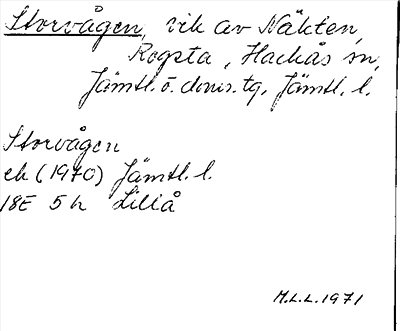 Storvågen, vik av Näkten,
Rogsta, Hackås sn,
Jämtl. ö. doms. tg, Jämtl. l.
Storvågen
ek (1970) Jämtl. l.
18E 5h Lillå
M.L.L. 1971